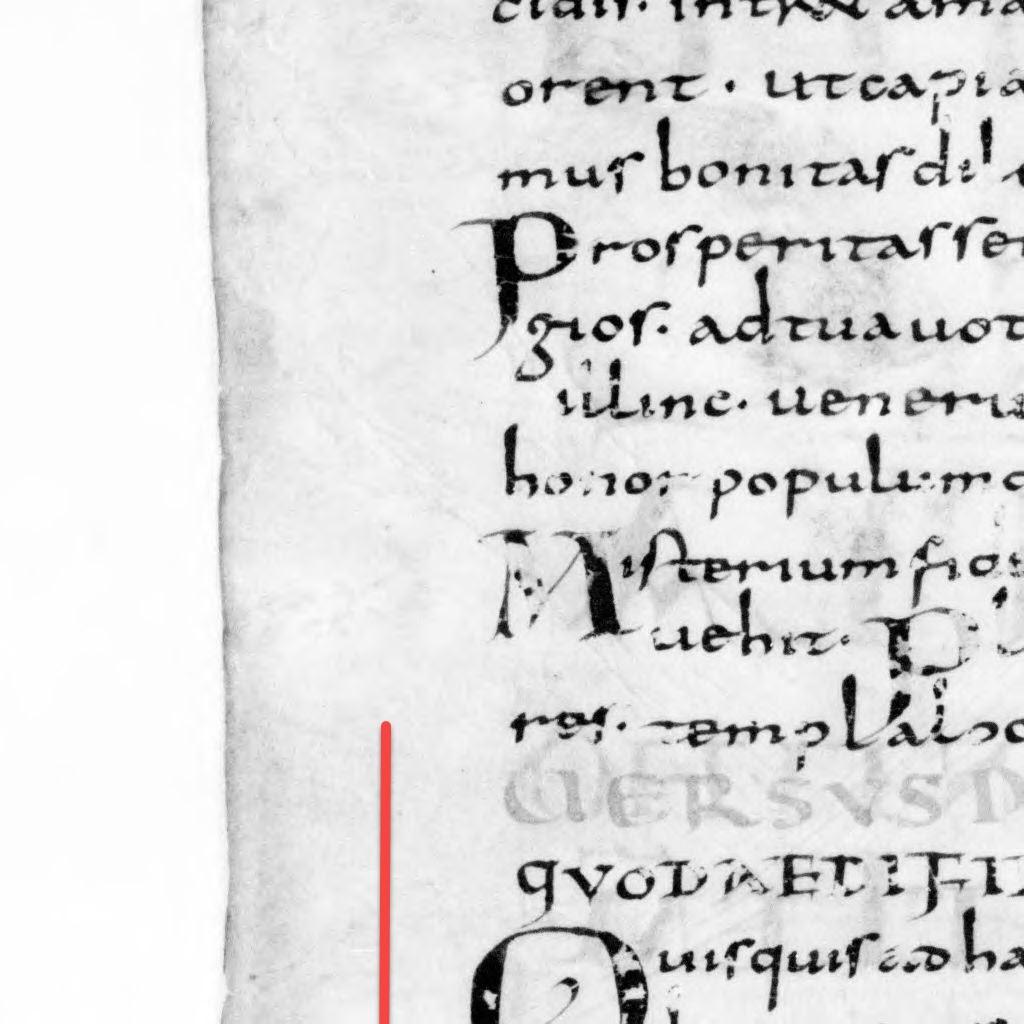 cidis. intret ama
orent. ut capia
mus bonitas di
Prosperitas ser
gios. ad tua uot
illinc. ueneru
honor populum
Misterium
uehit. P
ros. templa
UERSUS D
QVOD AEDIFI
Quisquis ad ha